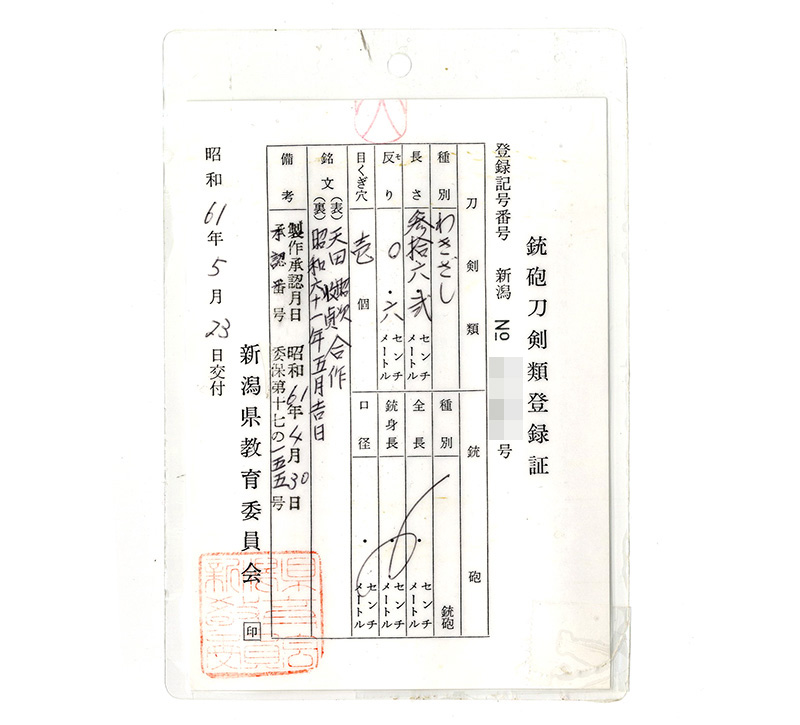 銃砲刀剣類登録証
登録記号番号 新潟 No 号
刀剣類
種別 わきざし
長さ 参拾六.弐 センチメートル
反り 0.六 センチメートル
目くぎ穴 壱個
銃砲
種別 銃砲
全長 . センチメートル
銃身長 . センチメートル
口径 . センチメートル
銘文 (表) 天田昭次 収貞 合作
(裏) 昭和六十一年五月吉日
備考 製作承認月日 昭和61年4月30日
承認番号 委保第十七の一五五号
新潟県教育委員会 印
昭和61年5月23日交付